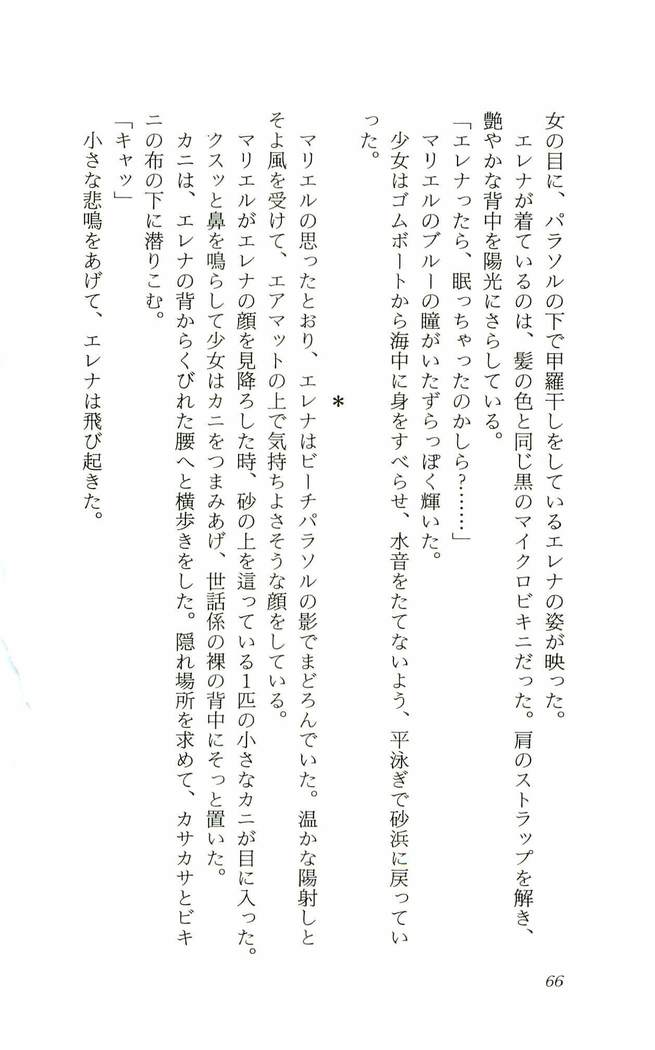 女の目に、パラソルの下で甲羅干しをしているエレナの姿が映った。
　エレナが着ているのは、髪の色と同じ黒のマイクロビキニだった。肩のストラップを解き、
艶やかな背中を陽光にさらしている。
「エレナったら、眠っちゃったのかしら?………」
　マリエルのブルーの瞳がいたずらっぽく輝いた。
　少女はゴムボートから海中に身をすべらせ、水音をたてないよう、平泳ぎで砂浜に戻ってい
った。
＊
　マリエルの思ったとおり、エレナはビーチパラソルの影でまどろんでいた。温かな陽射しと
そよ風を受けて、エアマットの上で気持ちよさそうな顔をしている。
　マリエルがエレナの顔を見降ろした時、砂の上を這っている1匹の小さなカニが目に入った。
　クスッと鼻を鳴らして少女はカニをつまみあげ、世話係の裸の背中にそっと置いた。
　カニは、エレナの背からくびれた腰へと横歩きをした。隠れ場所を求めて、カサカサとビキ
ニの布の下に潜りこむ。
「キャッ」
　小さな悲鳴をあげて、エレナは飛び起きた。
66